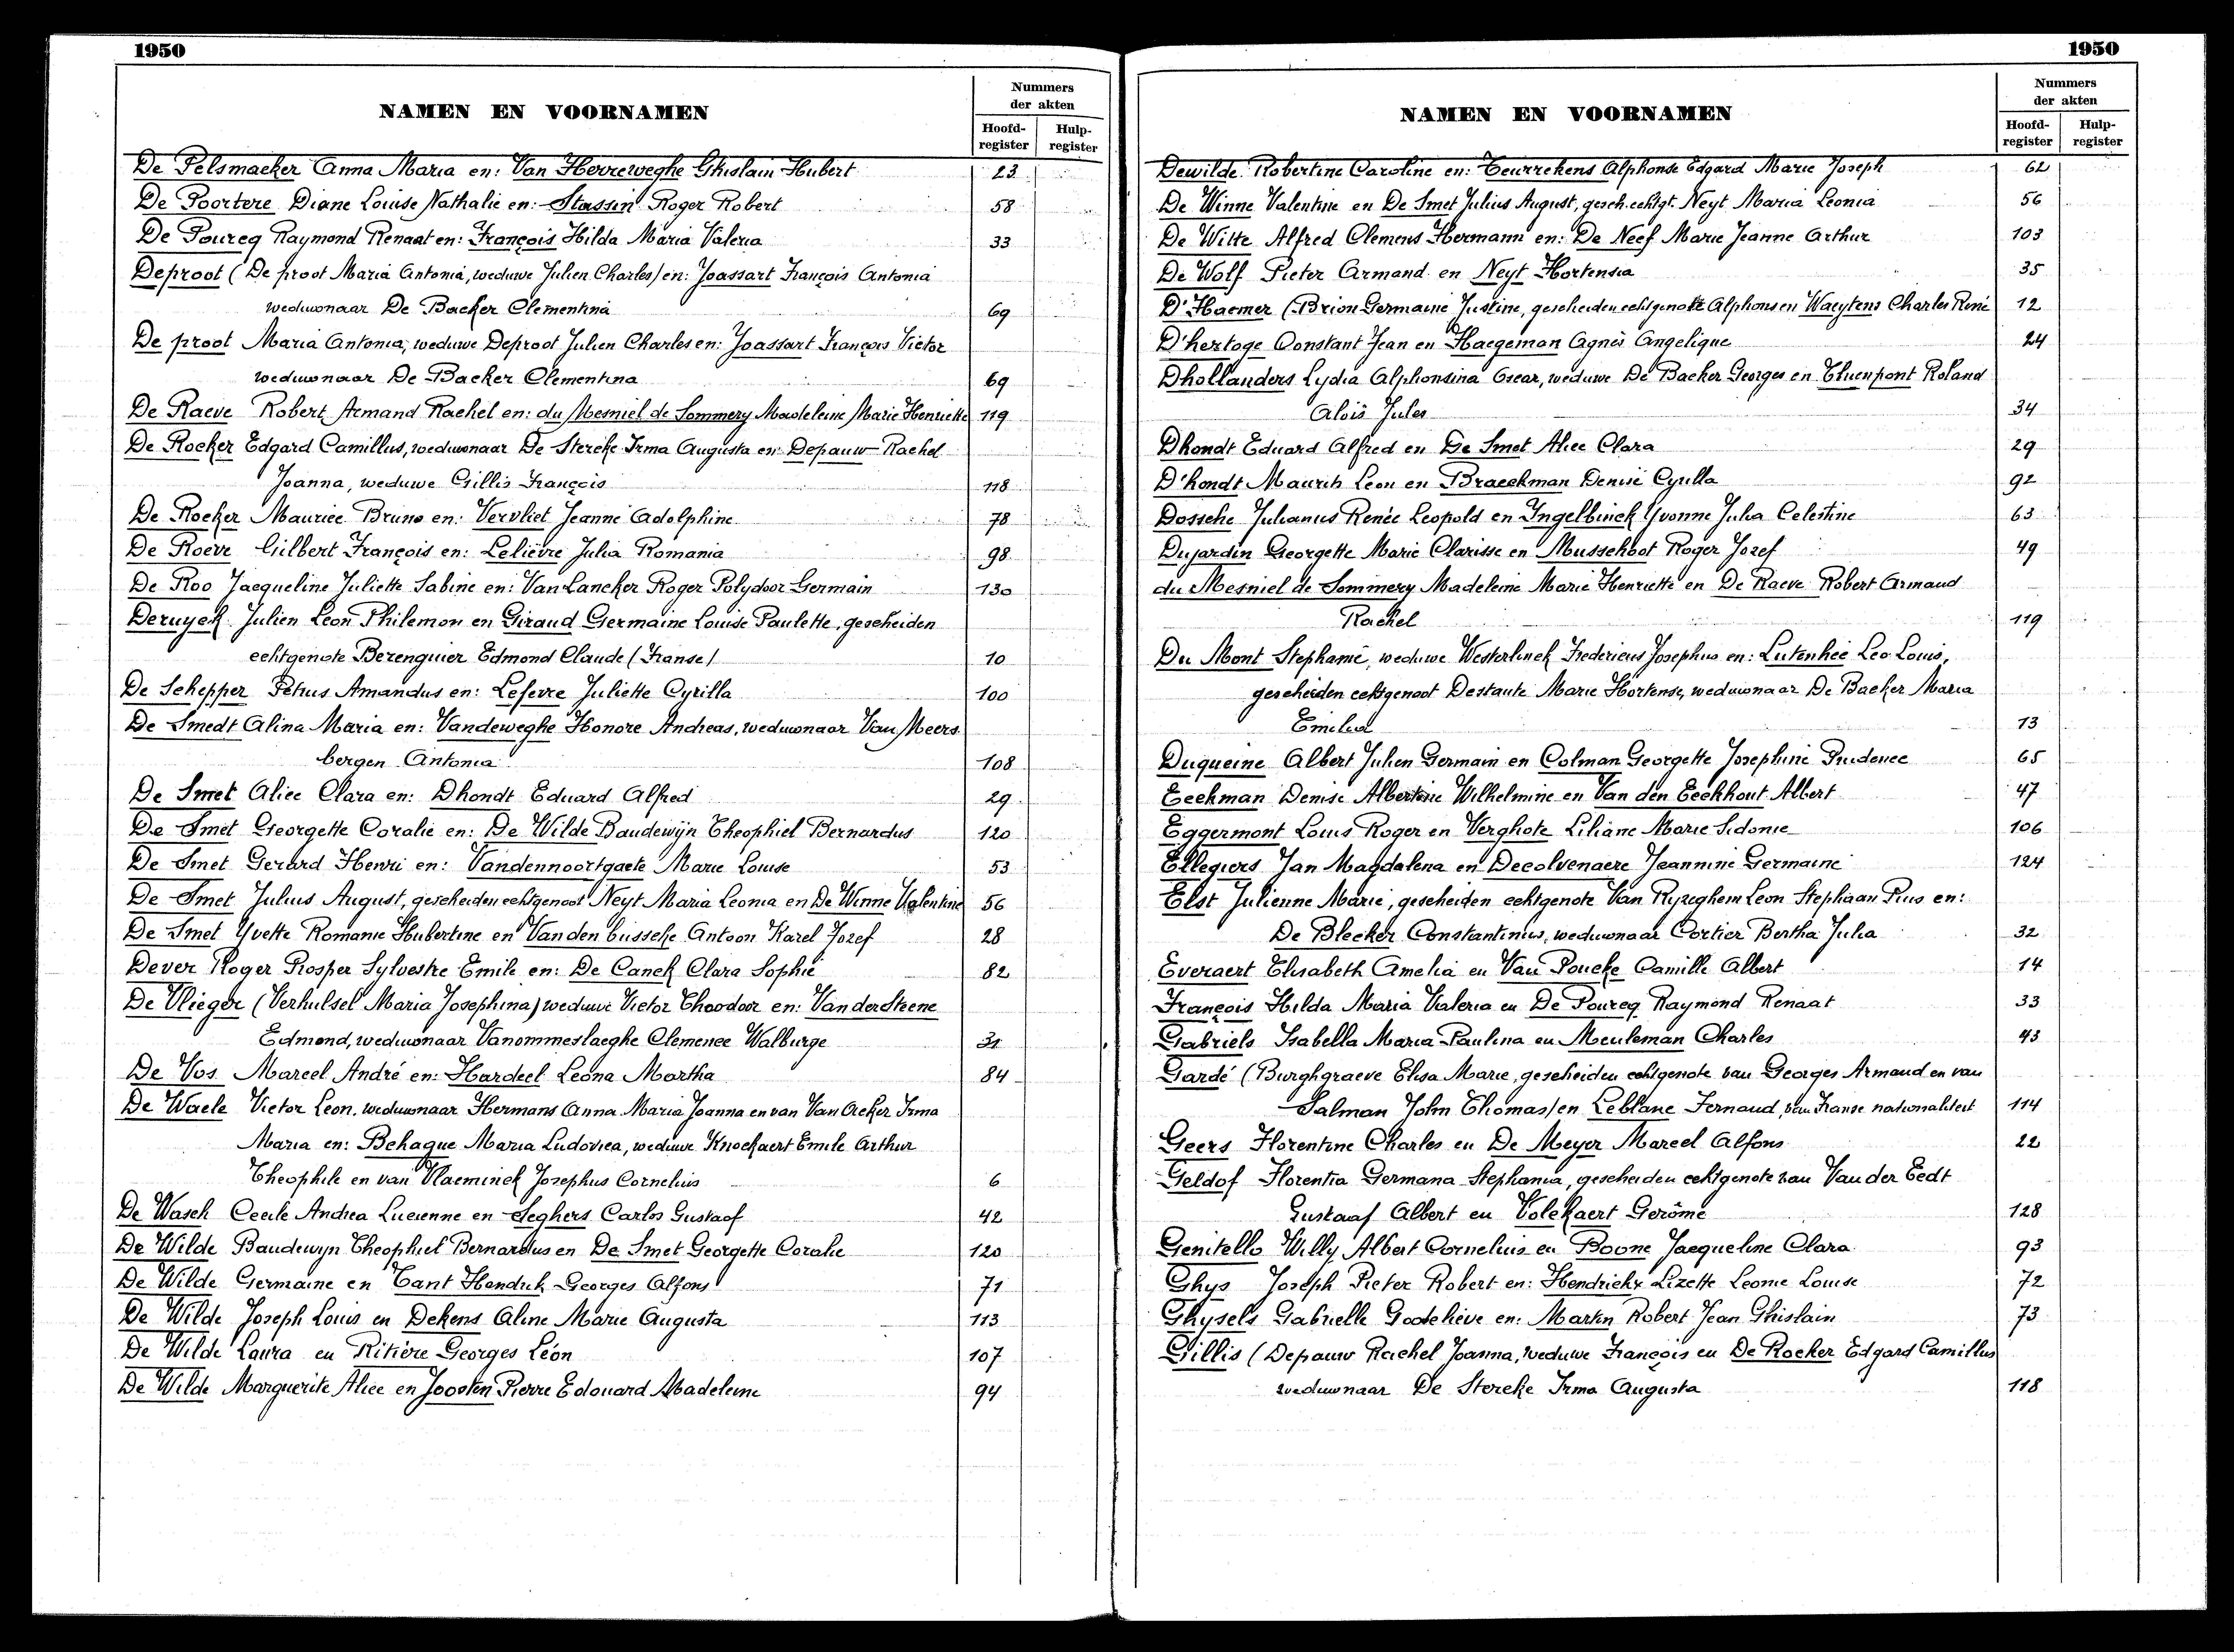 1950
NAMEN EN VOORNAMEN
Nummers
der akten
Hoofd-
register
Hulp-
register
De Pelsmaeker Anna Maria en: Van Herreweghe Ghislain Hubert 23
De Poortere Diane Louise Nathalie en: Stassin Roger Robert 58
De Pourcq Raymond Renaat en: François Hilda Maria Valeria 33
Deproot (De proot Maria Antonia, weduwe Julien Charles) en: Joassart François Antonia
weduwnaar De Backer Clementina 69
De proot Maria Antonia, weduwe Deproot Julien Charles en: Joassart François Victor
weduwnaar De Backer Clementina 69
De Raeve Robert Armand Rachel en: du Mesniel de Sommery Madeleine Marie Henriette 119
De Rocker Edgard Camillus, weduwnaar De Stercke Irma Augusta en: Depauw Rachel
Joanna, weduwe Gillis François 118
De Rocker Maurice Bruno en: Vervliet Jeanne Adolphine 78
De Roeve Gilbert François en: Lelièvre Julia Romania 98
De Roo Jacqueline Juliette Sabine en: Van Lancker Roger Polydoor Germain 130
Deruyck Julien Leon Philemon en Giraud Germaine Louise Paulette, gescheiden
echtgenote Berenguier Edmond Claude (Franse) 10
De Schepper Petrus Amandus en: Lefevre Juliette Cyrilla 100
De Smedt Alina Maria en: Vandeweghe Honore Andreas, weduwnaar Van Meers
bergen Antonia 108
De Smet Alice Clara en: Dhondt Eduard Alfred 29
De Smet Georgette Coralie en: De Wilde Baudewijn Theophiel Bernardus 120
De Smet Gerard Henri en: Vandennoortgaete Marie Louise 53
De Smet Julius August, gescheiden echtgenoot Neyt Maria Leonia en De Winne Valentine 56
De Smet Yvette Romanie Hubertine en Van den bussche Antoon Karel Jozef 28
Dever Roger Prosper Sylvestre Emile en: De Canck Clara Sophie 82
De Vlieger (Verhulsel Maria Josephina) weduwe Victor Theodoor en: Van der Steene
Edmond, weduwnaar Vanommeslaeghe Clemence Walburge 31
De Vos Marcel André en: Hardeel Leona Martha 84
De Waele Victor Leon, weduwnaar Hermans Anna Maria Joanna en van Van Acker Irma
Maria en: Behague Maria Ludovica, weduwe Knockaert Emile Arthur
Theophile en van Vlaeminck Josephus Cornelius 6
De Wasch Cecile Andrea Lucienne en Seghers Carlos Gustaaf 42
De Wilde Baudewyn Theophiel Bernardus en De Smet Georgette Coralie 120
De Wilde Germaine en Tant Hendrik Georges Alfons 71
De Wilde Joseph Louis en Dekens Aline Marie Augusta 113
De Wilde Laura en Ritière Georges Léon 107
De Wilde Marguerite Alice en Joosten Pierre Edouard Madeleine 94
1950
NAMEN EN VOORNAMEN
Nummers
der akten
Hoofd-
register
Hulp-
register
Dewilde Robertine Caroline en: Teurrekens Alphonse Edgard Marie Joseph 62
De Winne Valentine en De Smet Julius August, gesch. echtgt. Neyt Maria Leonia 56
De Witte Alfred Clemens Hermann en: De Neef Marie Jeanne Arthur 103
De Wolf Pieter Armand en Neyt Hortensia 35
D'Haemer (Brion Germaine Justine, gescheiden echtgenote Alphons en Waeytens Charles René 12
D'hertoge Constant Jean en Haegeman Agnès Angelique 24
Dhollanders Lydia Alphonsina Oscar, weduwe De Backer Georges en Thienpont Roland
Aloïs Jules 34
Dhondt Eduard Alfred en De Smet Alice Clara 29
D'hondt Maurits Leon en Braeckman Denise Cyrilla 92
Dossche Julianus Renée Leopold en Ingelbinck Yvonne Julia Celestine 63
Dujardin Georgette Marie Clarisse en Musschoot Roger Jozef 49
du Mesniel de Sommery Madeleine Marie Henriette en De Raeve Robert Armand
Rachel 119
Du Mont Stephanie, weduwe Westerlinck Fredericus Josephus en: Lutenhie Leo Louis,
gescheiden echtgenoot Destaute Marie Hortense, weduwnaar De Backer Maria
Emilia 13
Duqueine Albert Julien Germain en Colman Georgette Josephine Prudence 65
Eeckman Denise Albertine Wilhelmine en Van den Eeckhout Albert 47
Eggermont Louis Roger en Verghote Liliane Marie Sidonie 106
Ellegiers Jan Magdalena en Decolvenaere Jeannine Germaine 124
Elst Julienne Marie, gescheiden echtgenote Van Ryzeghem Leon Stephaan Pius en:
De Bleeker Constantinus, weduwnaar Cortier Bertha Julia 32
Everaert Elisabeth Amelia en Van Poucke Camille Albert 14
François Hilda Maria Valeria en De Pourcq Raymond Renaat 33
Gabriels Isabella Maria Paulina en Meuleman Charles 43
Gardé (Burghgraeve Elisa Marie, gescheiden echtgenote van Georges Armand en van
Salman John Thomas) en Leblanc Fernand, van Franse nationaliteit 114
Geers Florentine Charles en De Meyer Marcel Alfons 22
Geldof Florentia Germana Stephania, gescheiden echtgenote van Van der Eedt
Gustaaf Albert en Volckaert Gerôme 128
Genitello Willy Albert Cornelius en Boone Jacqueline Clara 93
Ghys Joseph Pieter Robert en: Hendrickx Lizette Leonie Louise 72
Ghysels Gabrielle Godelieve en: Martin Robert Jean Ghislain 73
Gillis (Depauw Rachel Joanna, weduwe François en De Rocker Edgard Camillus
weduwnaar De Stercke Irma Augusta 118